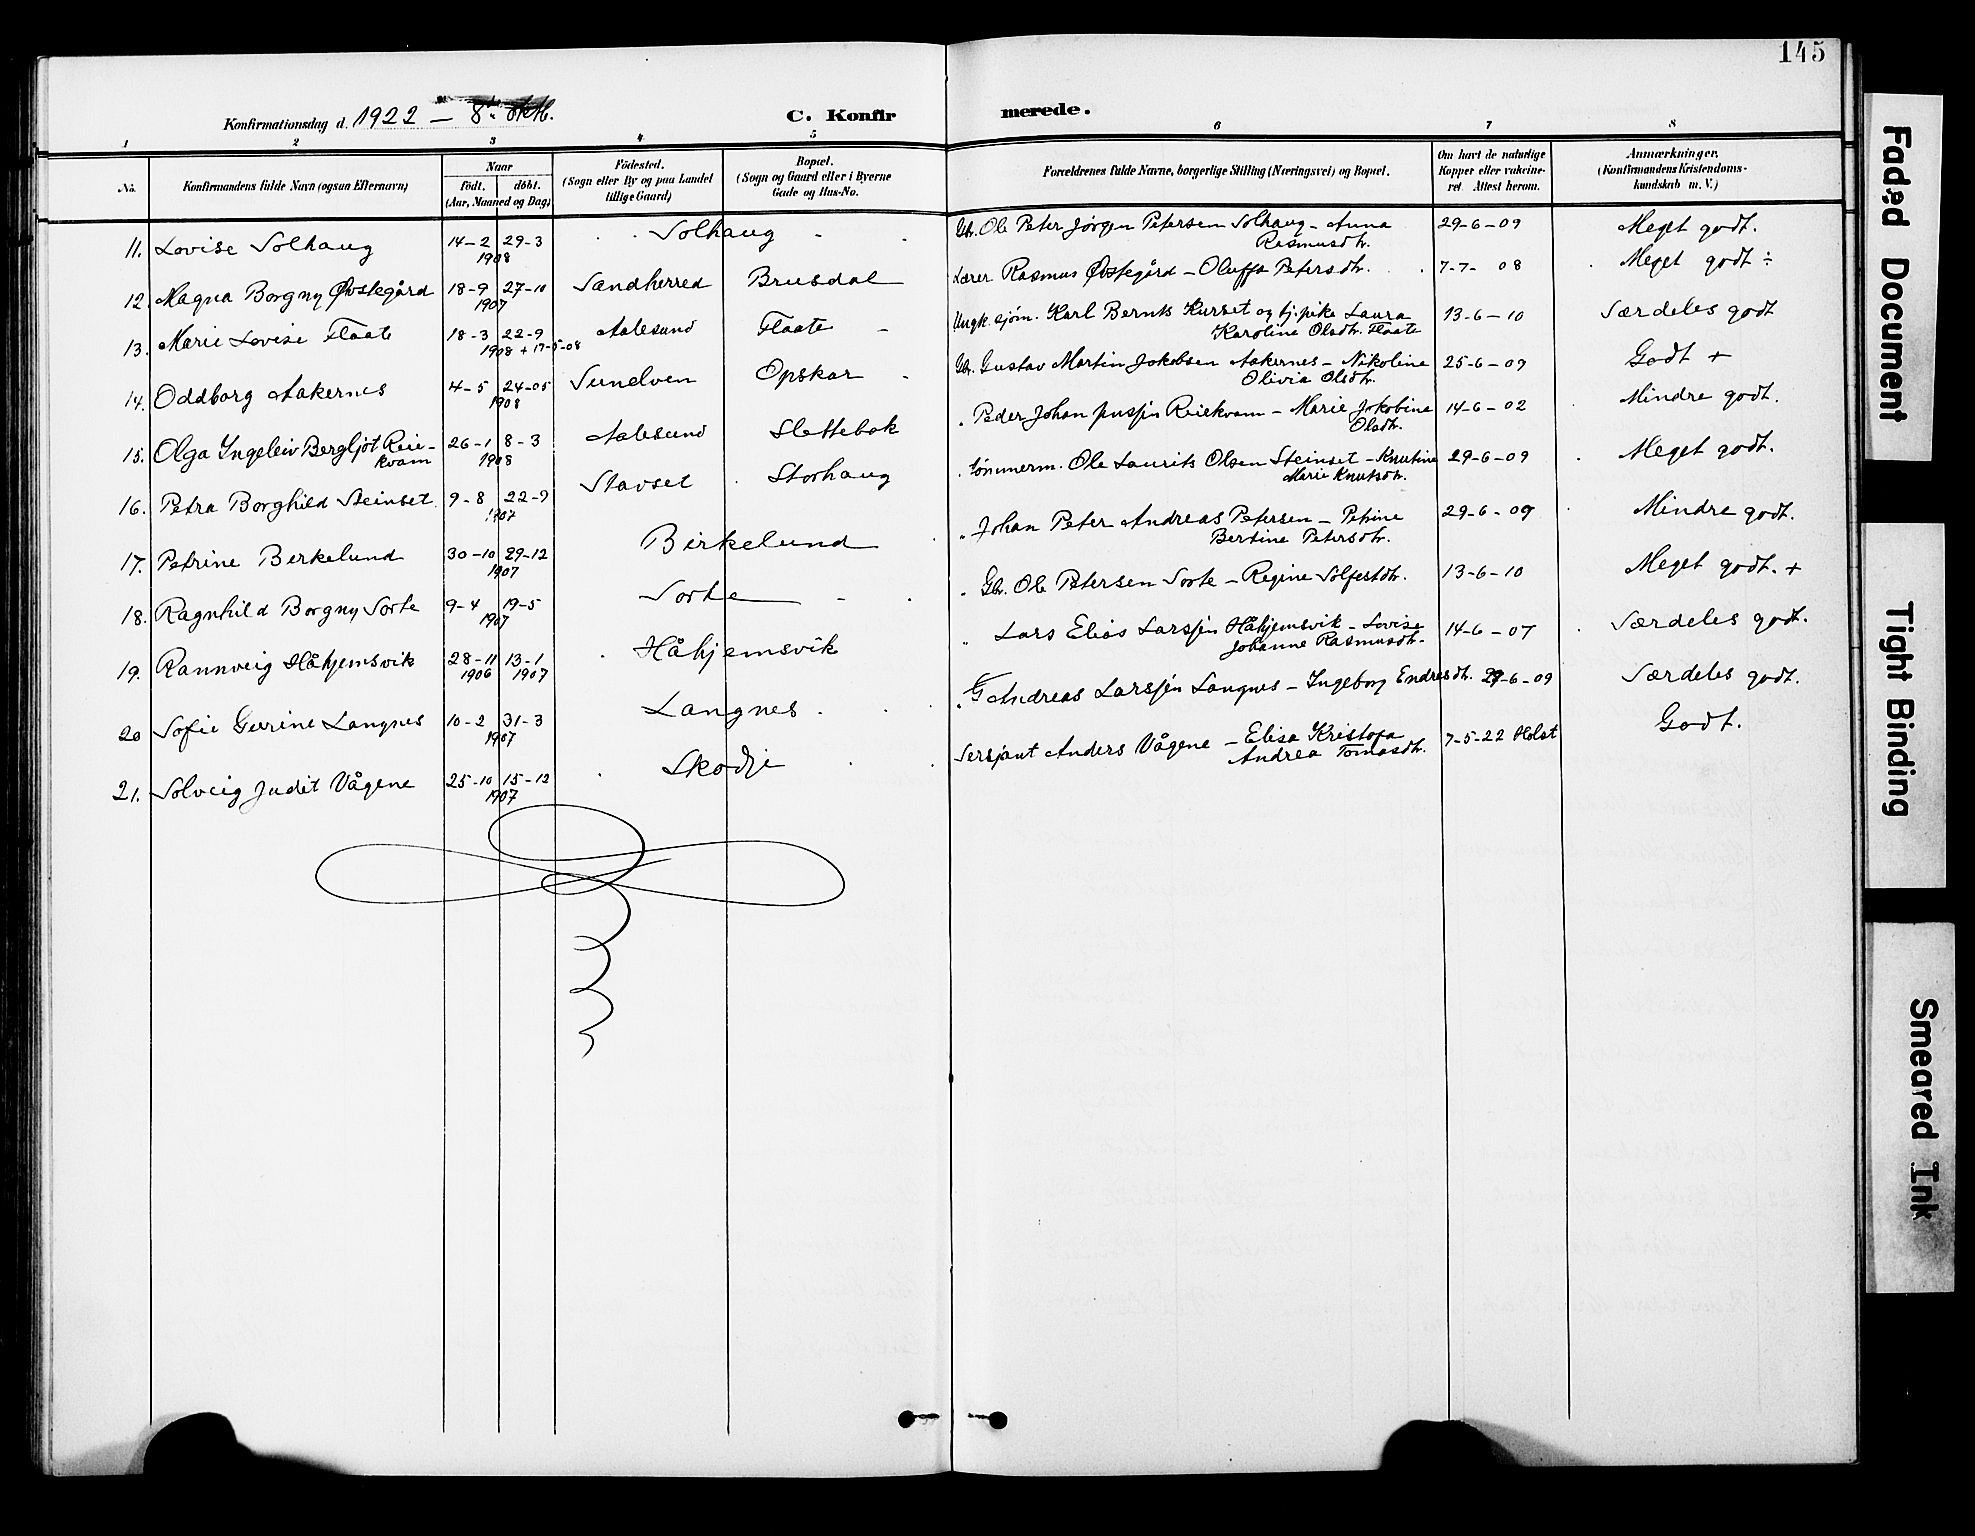 145
Konfirmationsdag d. 1922 – 8. okt.
C. Konfirmerede.
1 2 3 4 5 6 7 8
No.
Konfirmandens fulde Navn (ogsaa Efternavn)
Naar
født. døbt.
(Aar, Maaned og Dag)
Fødested.
(Sogn eller By og paa Landet
tillige Gaard)
Bopæl.
(Sogn og Gaard eller i Byerne
Gade og Hus-No.
Forældrenes fulde Navne, borgerlige Stilling (Næringsvei) og Bopæl.
Om havt de naturlige
Kopper eller vakcine-
ret. Attest herom.
Anmærkninger.
(Konfirmandens Kristendoms-
kundskab m. V.)
11. Lovise Solhaug 14-2 29-3 1908 Solhaug Gbr. Ole Peter Jørgen Petersen Solhaug – Anna Rasmusdtr. 29-6-09 Meget godt.
12. Magna Borgny Øvstegård 18-9 27-10 1907 Sandherred Brusdal Lærer Rasmus Øvstegård – Oluffa Petersdtr. 7-7-08 Meget godt ÷
13. Marie Lovise Flaate 18-3 22-9 1908 + 17-5-08 Aalesund Flaate Ungk. sjøm. Karl Bernts Kurset og tj.pike Laura Karoline Olsdtr. Flaate 13-6-10 Særdeles godt
14. Oddborg Aakernes 4-5 24-05 1908 Sunelven Opskar Gbr. Gustav Martin Jakobsen Aakernes – Nikoline Olivia Olsdtr. 25-6-09 Godt +
15. Olga Ingeleiv Bergljot Reiekvam 26-1 8-3 1908 Aalesund Slettebak Peder Johan Reiekvam – Marie Jakobine Olsdtr. 14-6-02 Mindre godt.
16. Petra Borghild Steinset 9-8 22-9 1907 Stavset Storhaug Tømmerm. Ole Laurits Olsen Steinset – Knutine Marie Knutsdtr. 29-6-09 Meget godt.
17. Petrine Birkelund 30-10 29-12 1907 Birkelund Johan Peter Andreas Petersen – Petrine Bertine Petersdtr. 29-6-09 Mindre godt.
18. Ragnhild Borgny Sorte 9-4 19-5 1907 Sorte Gbr. Ole Petersen Sorte – Regine Solfestdtr. 13-6-10 Meget godt. +
19. Rannveig Håhjemsvik 28-11 1906 13-1 1907 Håhjemsvik Lars Elias Larssen Håhjemsvik – Lovise Johanne Rasmusdtr. 14-6-07 Særdeles godt.
20 Sofie Gurine Langnes 10-2 31-3 1907 Langnes G Andreas Larssen Langnes – Ingeborg Endresdtr. 29-6-09 Særdeles godt.
21. Solveig Judit Vågene 25-10 15-12 1907 Skodje Sersjant Anders Vågene – Elisa Kristofa Andrea Tomasdtr. 7-5-22 Holst Godt.
Faded Document
Tight Binding
Smeared Ink